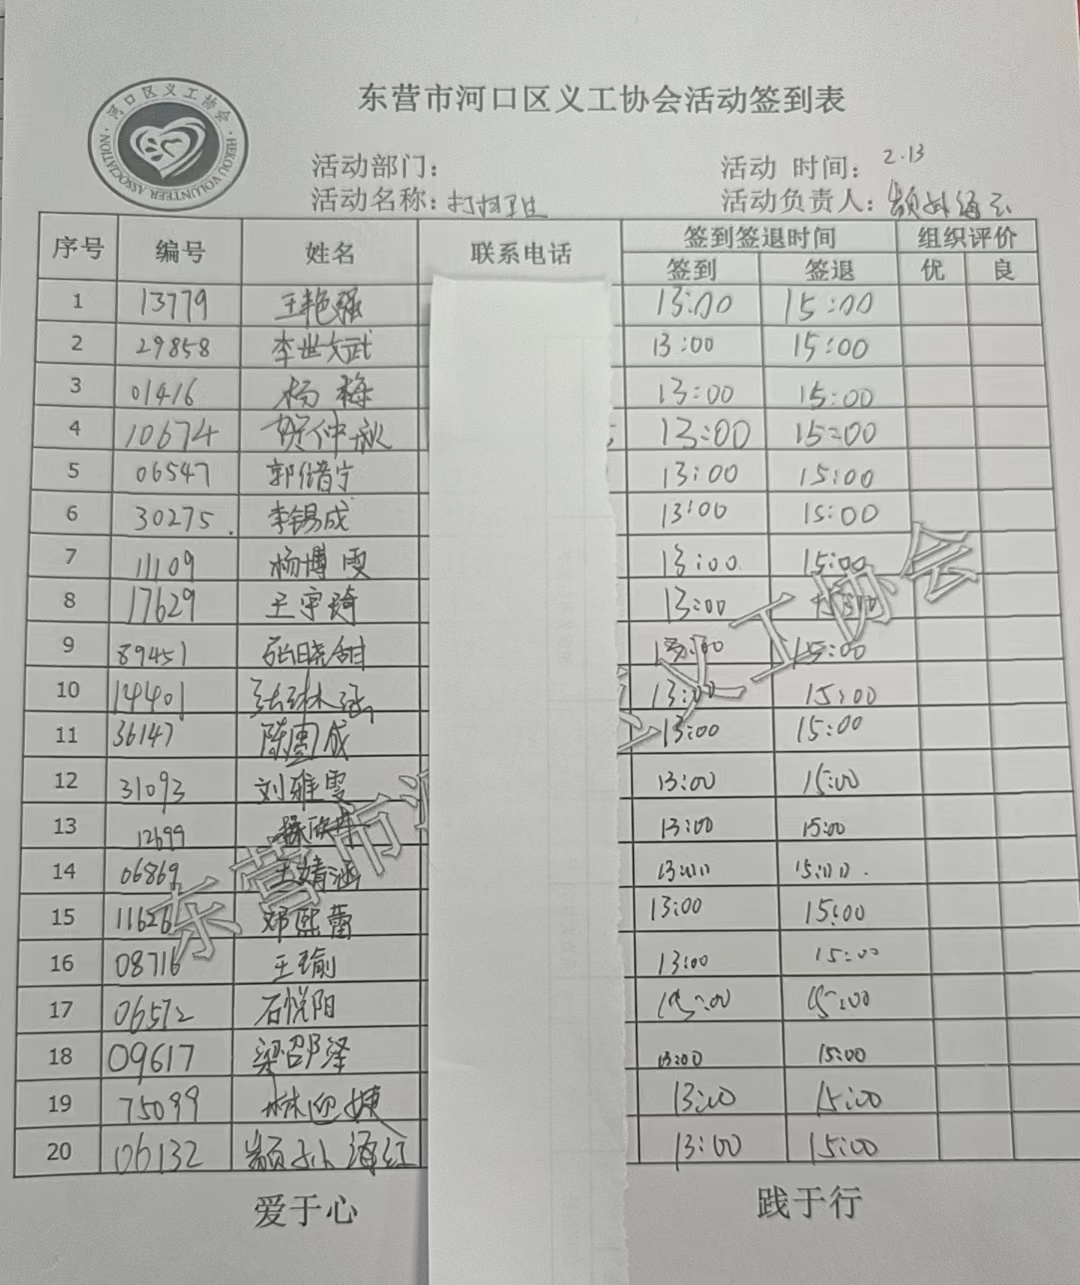 东营市河口区义工协会活动签到表
河口区义工协会
HEKOU VOLUNTEER ASSOCIATION
活动部门： 活动 时间： 2.13
活动名称：打扫卫生 活动负责人：
序号 编号 姓名 联系电话 签到签退时间 组织评价
签到 签退 优 良
1 13779 王艳强 13:00 15:00
2 29858 李世斌 13:00 15:00
3 01416 杨梅 13:00 15:00
4 10674 贺仲秋 13:00 15:00
5 06547 郭倍宁 13:00 15:00
6 30275. 李锡成 13:00 15:00
7 11109 杨博雯 13:00 15:00
8 17629 王宇琦 13:00 15:00
9 89451 张晓甜 13:00 15:00
10 14401 张琳涵 13:00 15:00
11 36147 陈国成 13:00 15:00
12 31093 刘雅雯 13:00 15:00
13 12699 13:00 15:00
14 06869 王婧涵 13:00 15:00.
15 11626 邓熙蕾 13:00 15:00
16 08716 王瑜 13:00 15:00
17 06572 石悦阳 13:00 15:00
18 09617 梁邵泽 13:00 15:00
19 75099 林迎 13:00 15:00
20 06132 13:00 15:00
东营市河 义工协会
爱于心 践于行